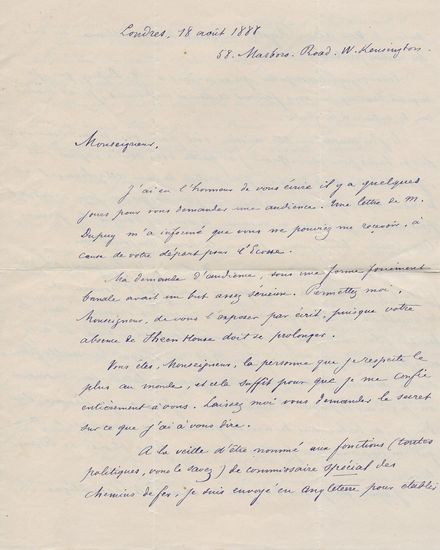 Londres, 18 août 1888
58. Marboro. Road. W. Kensington.
Monseigneur,
J'ai eu l'honneur de vous écrire il y a quelques
jours pour vous demander une audience. Une lettre de M.
Dupuy m'a informé que vous ne pouviez me recevoir, à
cause de votre départ pour l'Ecosse.
Ma demande d'audience, sous une forme forcément
banale avait un but assez sérieux. Permettez moi,
Monseigneur, de vous l'exposer par écrit, puisque votre
absence de Sheen House doit se prolonger.
Vous êtes, Monseigneur, la personne que je respecte le
plus au monde, et cela suffit pour que je me confie
entièrement à vous. Laissez moi vous demander le secret
sur ce que j'ai à vous dire.
A la veille d'être nommé aux fonctions (toutes
politiques, vous le savez) de commissaire spécial des
chemins de fer, je suis envoyé en Angleterre pour établir